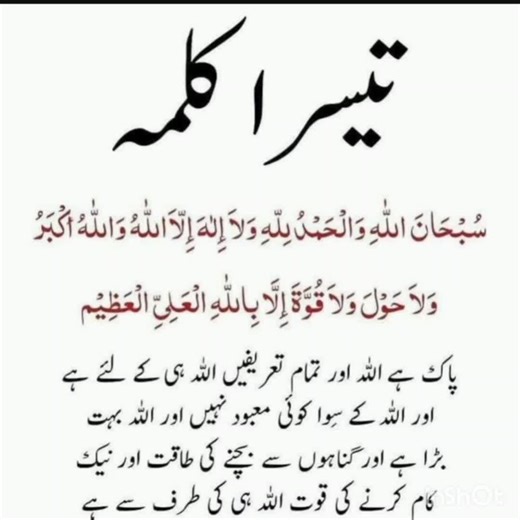 تیسرا کلمہ
سُبْحَانَ اللّٰهِ وَالْحَمْدُ لِلّٰهِ وَلَا إِلٰهَ إِلَّا اللّٰهُ وَاللّٰهُ أَكْبَرُ
وَلَا حَوْلَ وَلَا قُوَّةَ إِلَّا بِاللّٰهِ الْعَلِيِّ الْعَظِيْمِ
پاک ہے اللہ اور تمام تعریفیں اللہ ہی کے لئے ہے
اور اللہ کے سِوا کوئی معبود نہیں اور اللہ بہت
بڑا ہے اور گناہوں سے بچنے کی طاقت اور نیک
کام کرنے کی قوت اللہ ہی کی طرف سے ہے
InShOt